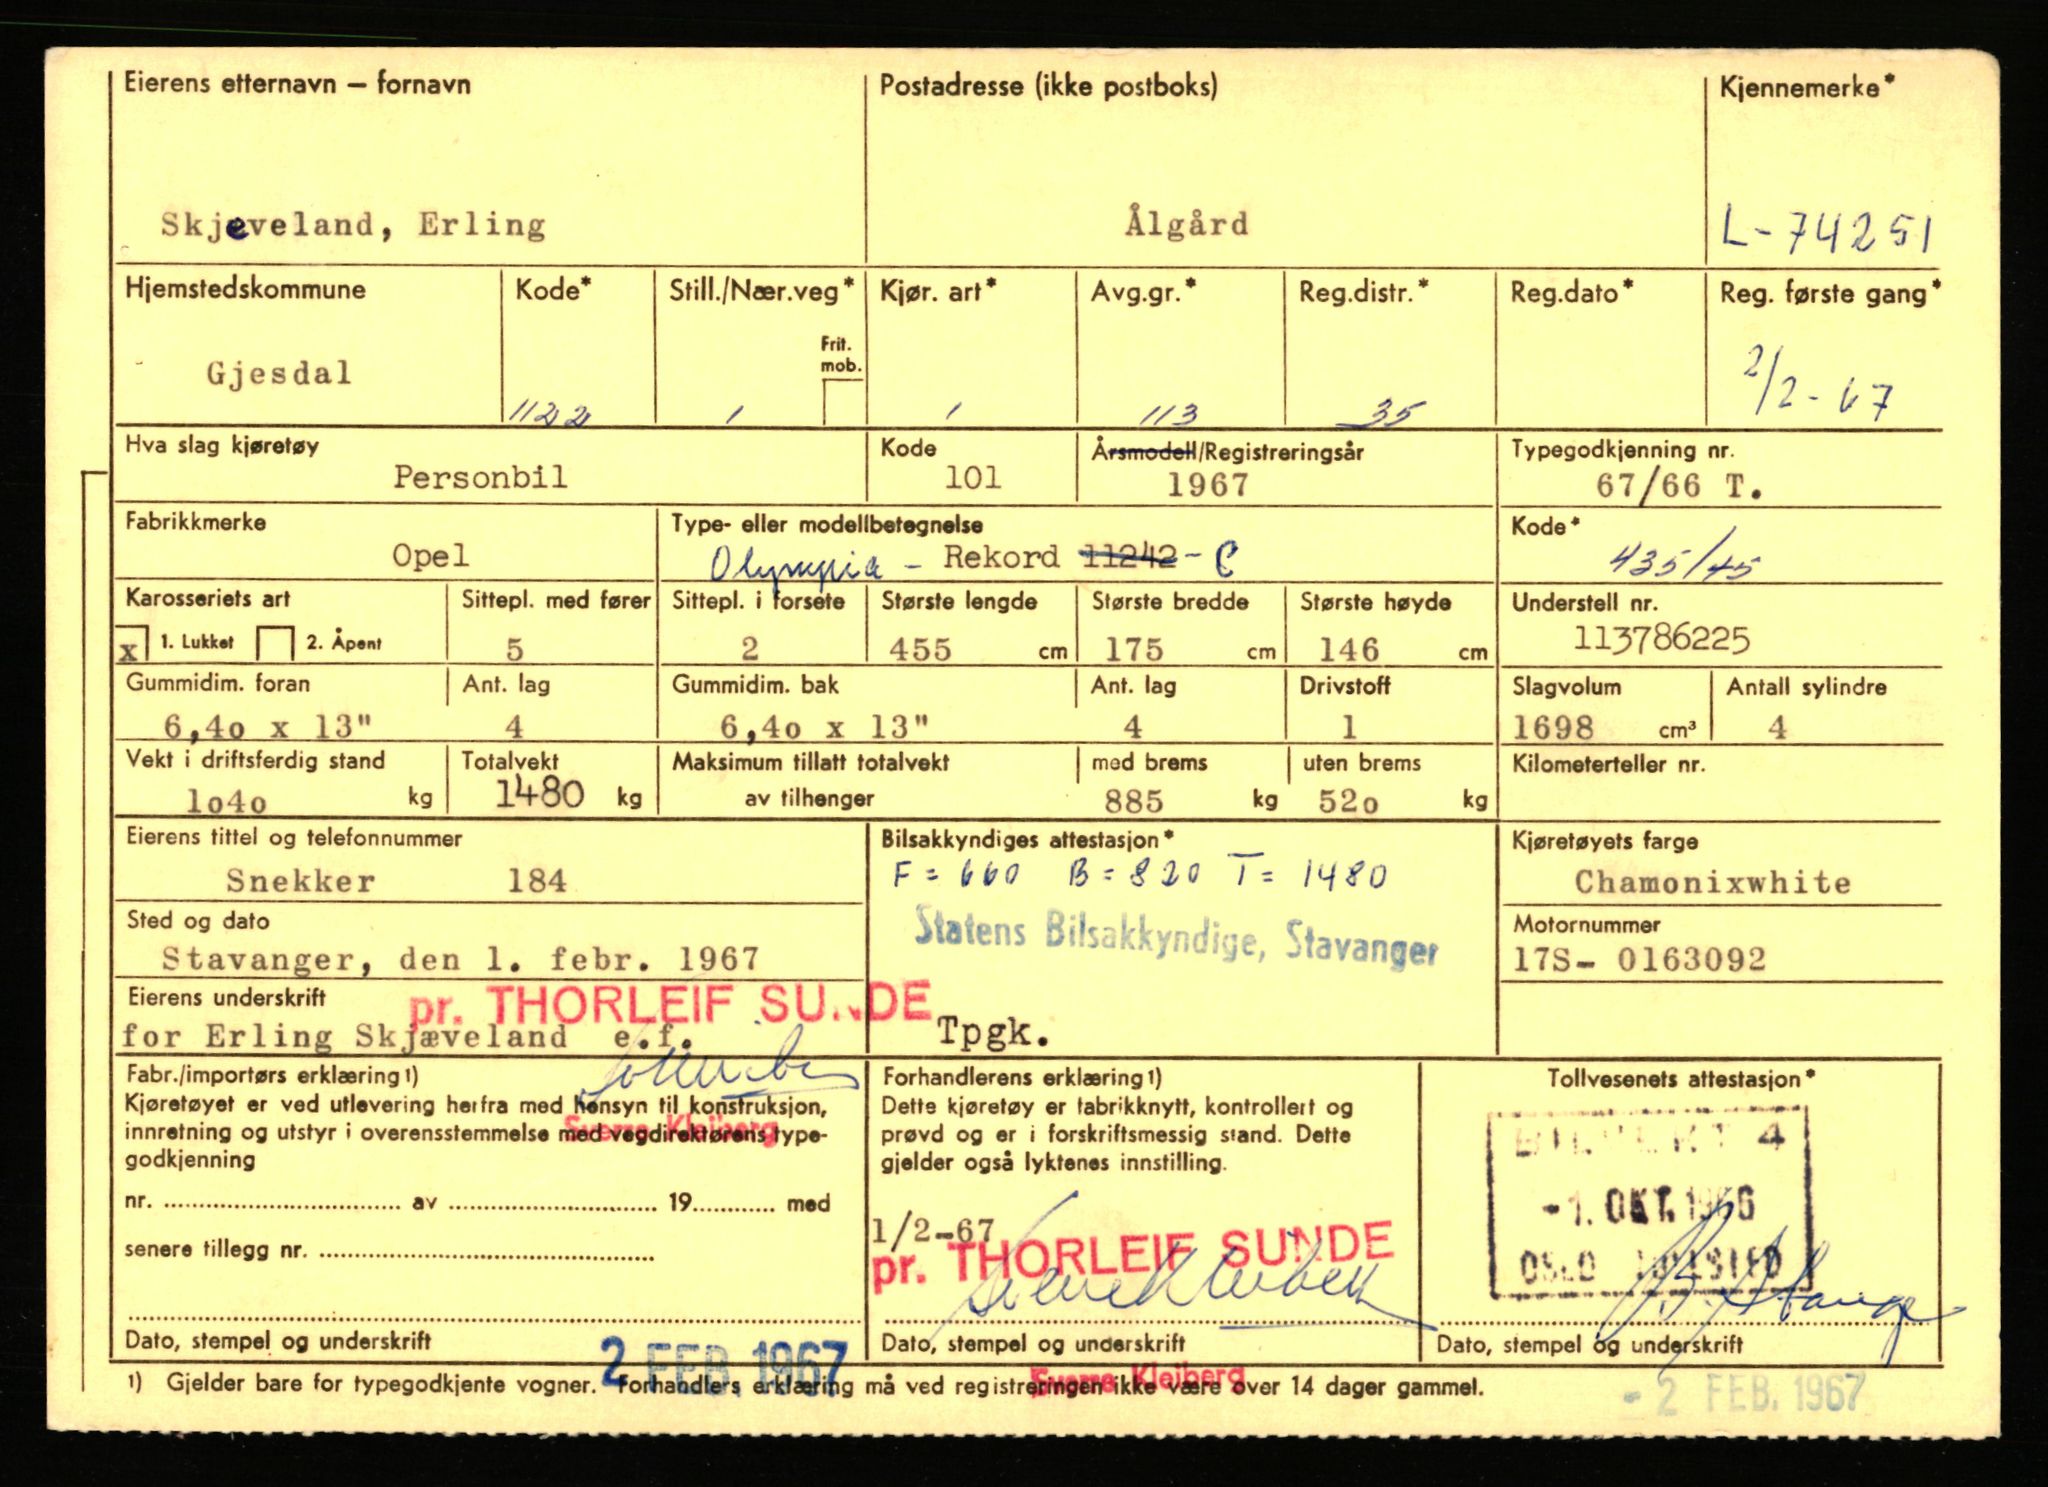 Eierens etternavn – fornavn
Postadresse (ikke postboks)
Kjennemerke*
Skjeveland, Erling
Ålgård
L-74251
Hjemstedskommune
Kode*
Still./Nær.veg*
Kjør. art*
Avg.gr.*
Reg.distr.*
Reg.dato*
Reg. første gang*
Frit. mob.
Gjesdal
1122
1
1
113
35
2/2-67
Hva slag kjøretøy
Kode
Årsmodell/Registreringsår
Typegodkjenning nr.
Personbil
101
1967
67/66 T.
Fabrikkmerke
Type- eller modellbetegnelse
Kode*
Opel
Olympia - Rekord 11242 - C
435/45
Karosseriets art
Sittepl. med fører
Sittepl. i forsete
Største lengde
Største bredde
Største høyde
Understell nr.
x 1. Lukket 2. Åpent
5
2
455 cm
175 cm
146 cm
113786225
Gummidim. foran
Ant. lag
Gummidim. bak
Ant. lag
Drivstoff
Slagvolum
Antall sylindre
6,4o x 13"
4
6,4o x 13"
4
1
1698 cm³
4
Vekt i driftsferdig stand
Totalvekt
Maksimum tillatt totalvekt
med brems
uten brems
Kilometerteller nr.
1o4o kg
1480 kg
av tilhenger
885 kg
52o kg
Eierens tittel og telefonnummer
Bilsakkyndiges attestasjon*
Kjøretøyets farge
Snekker 184
F = 660 B = 820 T = 1480
Chamonixwhite
Sted og dato
Statens Bilsakkyndige, Stavanger
Motornummer
Stavanger, den 1. febr. 1967
17S- 0163092
Eierens underskrift
pr. THORLEIF SUNDE
for Erling Skjæveland e.f.
Tpgk.
Fabr./importørs erklæring 1)
Kjøretøyet er ved utlevering herfra med hensyn til konstruksjon,
innretning og utstyr i overensstemmelse med vegdirektørens type-
godkjenning
Sverre Kleiberg
nr. av 19 med
senere tillegg nr.
Dato, stempel og underskrift
Forhandlerens erklæring 1)
Dette kjøretøy er fabrikknytt, kontrollert og
prøvd og er i forskriftsmessig stand. Dette
gjelder også lyktenes innstilling.
1/2-67
pr. THORLEIF SUNDE
Dato, stempel og underskrift
Sverre Kleiberg
Tollvesenets attestasjon*
4
-1. OKT. 1966
OSLO TOLLSTED
Dato, stempel og underskrift
2 FEB. 1967
1) Gjelder bare for typegodkjente vogner. Forhandlers erklæring må ved registreringen ikke være over 14 dager gammel.
- 2 FEB. 1967